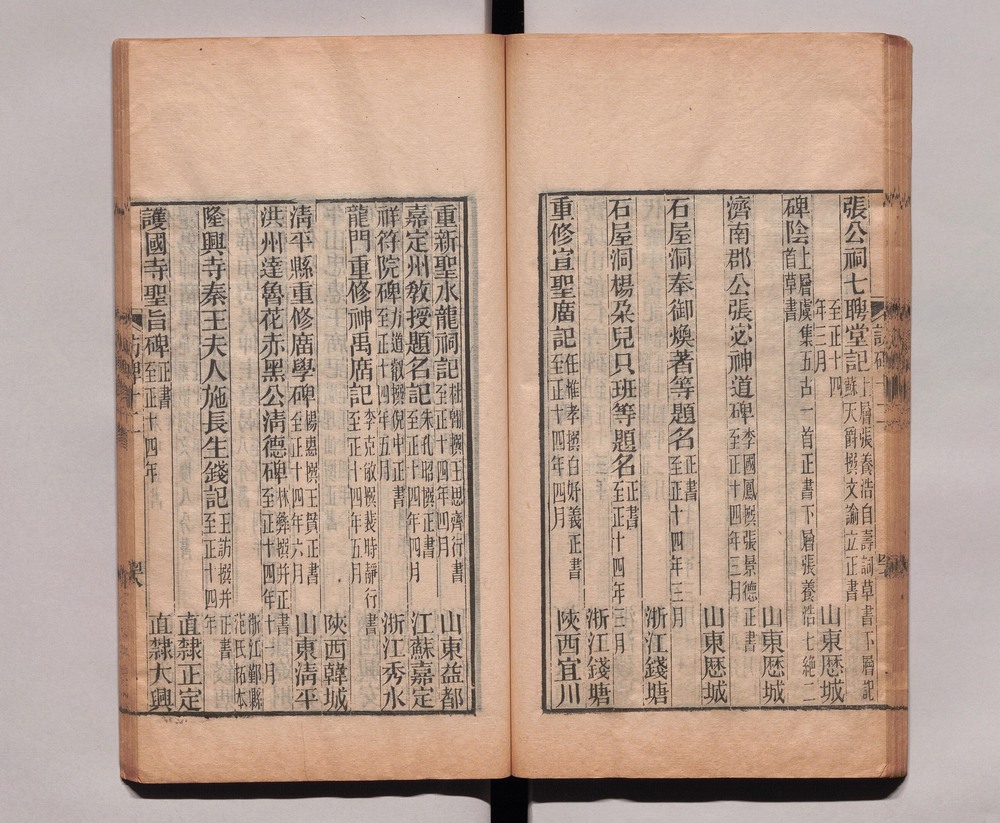 張公祠七聘堂記上層張養浩自壽詞草書下層記蘇天爵撰文諭立正書至正十四年三月 山東歷城
碑陰上層虞集五古一首正書下層張養浩七絶二首草書 山東歷城
濟南郡公張宓神道碑李國鳳撰張景德正書至正十四年三月 山東歷城
石屋洞奉御煥著等題名正書至正十四年三月 浙江錢塘
石屋洞楊朵兒只班等題名正書至正十四年三月 浙江錢塘
重修宣聖廟記任惟孝撰白好義正書至正十四年四月 陝西宜川
重新聖水龍祠記杜翱撰王思齊行書至正十四年四月 山東益都
嘉定州敎授題名記朱孔昭撰正書至正十四年四月 江蘇嘉定
祥符院碑方道叡撰倪中正書至正十四年五月 浙江秀水
龍門重修神禹廟記李克敏撰裴時靜行書至正十四年五月 陝西韓城
淸平縣重修廟學碑楊惠撰王貫正書至正十四年六月 山東淸平
洪州達魯花赤黑公淸德碑林彝撰并正書至正十四年十一月 浙江鄞縣范氏拓本
隆興寺秦王夫人施長生錢記王訪撰并正書至正十四年 直隸正定
護國寺聖旨碑正書至正十四年 直隸大興